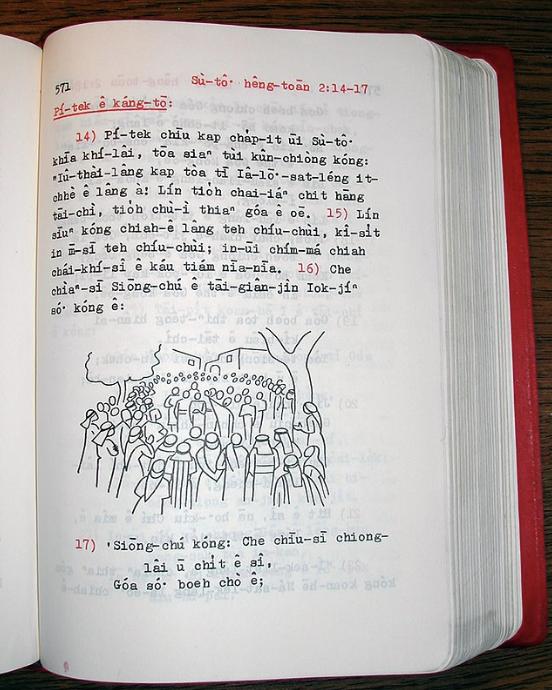 571 Sù-tô· hêng-toān 2:14-17
Pí-tek ê káng-tō:
14) Pí-tek chiū kap cha̍p-it ūi Sù-tô·
khiā khí-lâi, tōa siaⁿ tùi kûn-chiòng kóng:
"Iû-thài-lâng kap tòa tī Iâ-lō·-sat-léng it-
chhè ê lâng à! Lín tio̍h chai-iáⁿ chit hāng
tāi-chì, tio̍h chù-ì thiaⁿ góa ê oē. 15) Lín
siūⁿ kóng chiah-ê lâng teh chíu-chùi, kî-si̍t
in m̄-sī teh chíu-chùi; in-ūi chím-má chiah
chái-khí-sî ê káu tiám nīa-nīa. 16) Che
chìaⁿ-sī Siōng-chú ê tāi-giân-jîn Iok-jíⁿ
só· kóng ê:
17) 'Siōng-chú kóng: Che chīu-sī chiong-
lâi ū chi̍t ê sî,
Góa só· boeh chò ê;